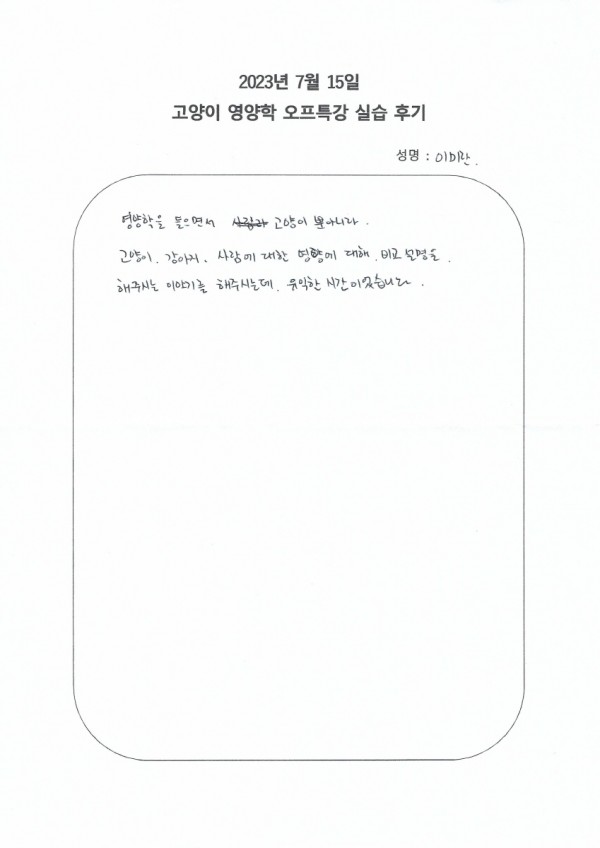 2023년 7월 15일
고양이 영양학 오프특강 실습 후기
성명 : 이미란.
영양학을 들으면서 고양이 뿐아니라.
고양이. 강아지. 사람에 대한 영향에 대해. 비교 설명을.
해주시는 이야기를 해주시는데. 유익한 시간이었습니다.